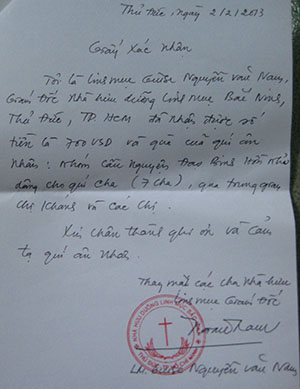 Thủ Đức, ngày 2/2/2013
Giấy Xác Nhận
Tôi là Linh mục Giuse Nguyễn văn Nam,
Giám Đốc Nhà hưu dưỡng Linh mục Bắc Ninh,
Thủ Đức, TP. HCM đã nhận được số
tiền là 700 USD và quà của quí ân
nhân: Nhóm Cầu Nguyện Đao Binh Hồn Nhỏ
dâng cho quí cha (7 cha), qua trung gian
chị Khánh và các chị.
Xin chân thành ghi ơn và Cảm
tạ quí ân nhân.
Thay mặt các cha Nhà hưu
Linh mục Giám Đốc
NHÀ HƯU DƯỠNG LINH MỤC BẮC
THỦ ĐỨC
Lm. Giuse Nguyễn văn Nam